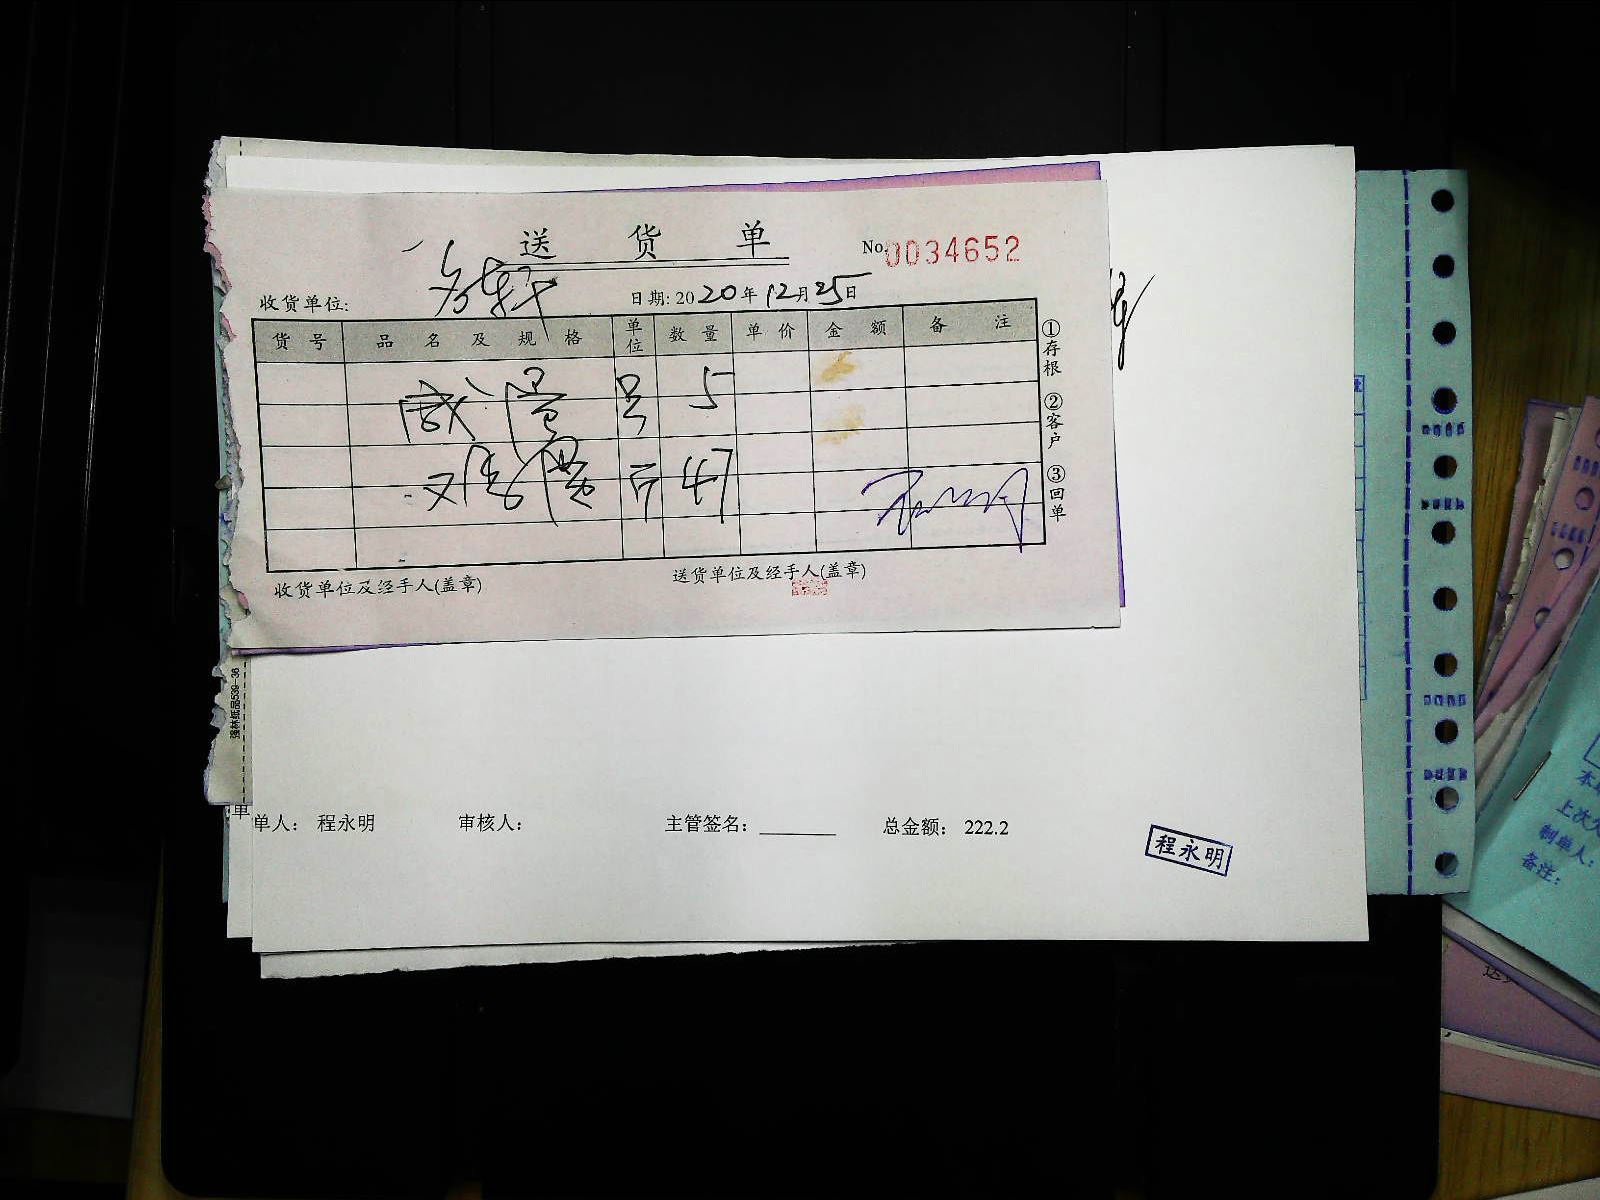 送货单
No.0034652
收货单位:
日期: 2020年12月25日
货号 品名及规格 单位 数量 单价 金额 备注
咸蛋 只 5
斤 47
①存根
②客户
③回单
收货单位及经手人(盖章)
送货单位及经手人(盖章)
强林纸品539-36
单
单人: 程永明 审核人: 主管签名: 总金额: 222.2
程永明
上次欠
制单人:
备注: